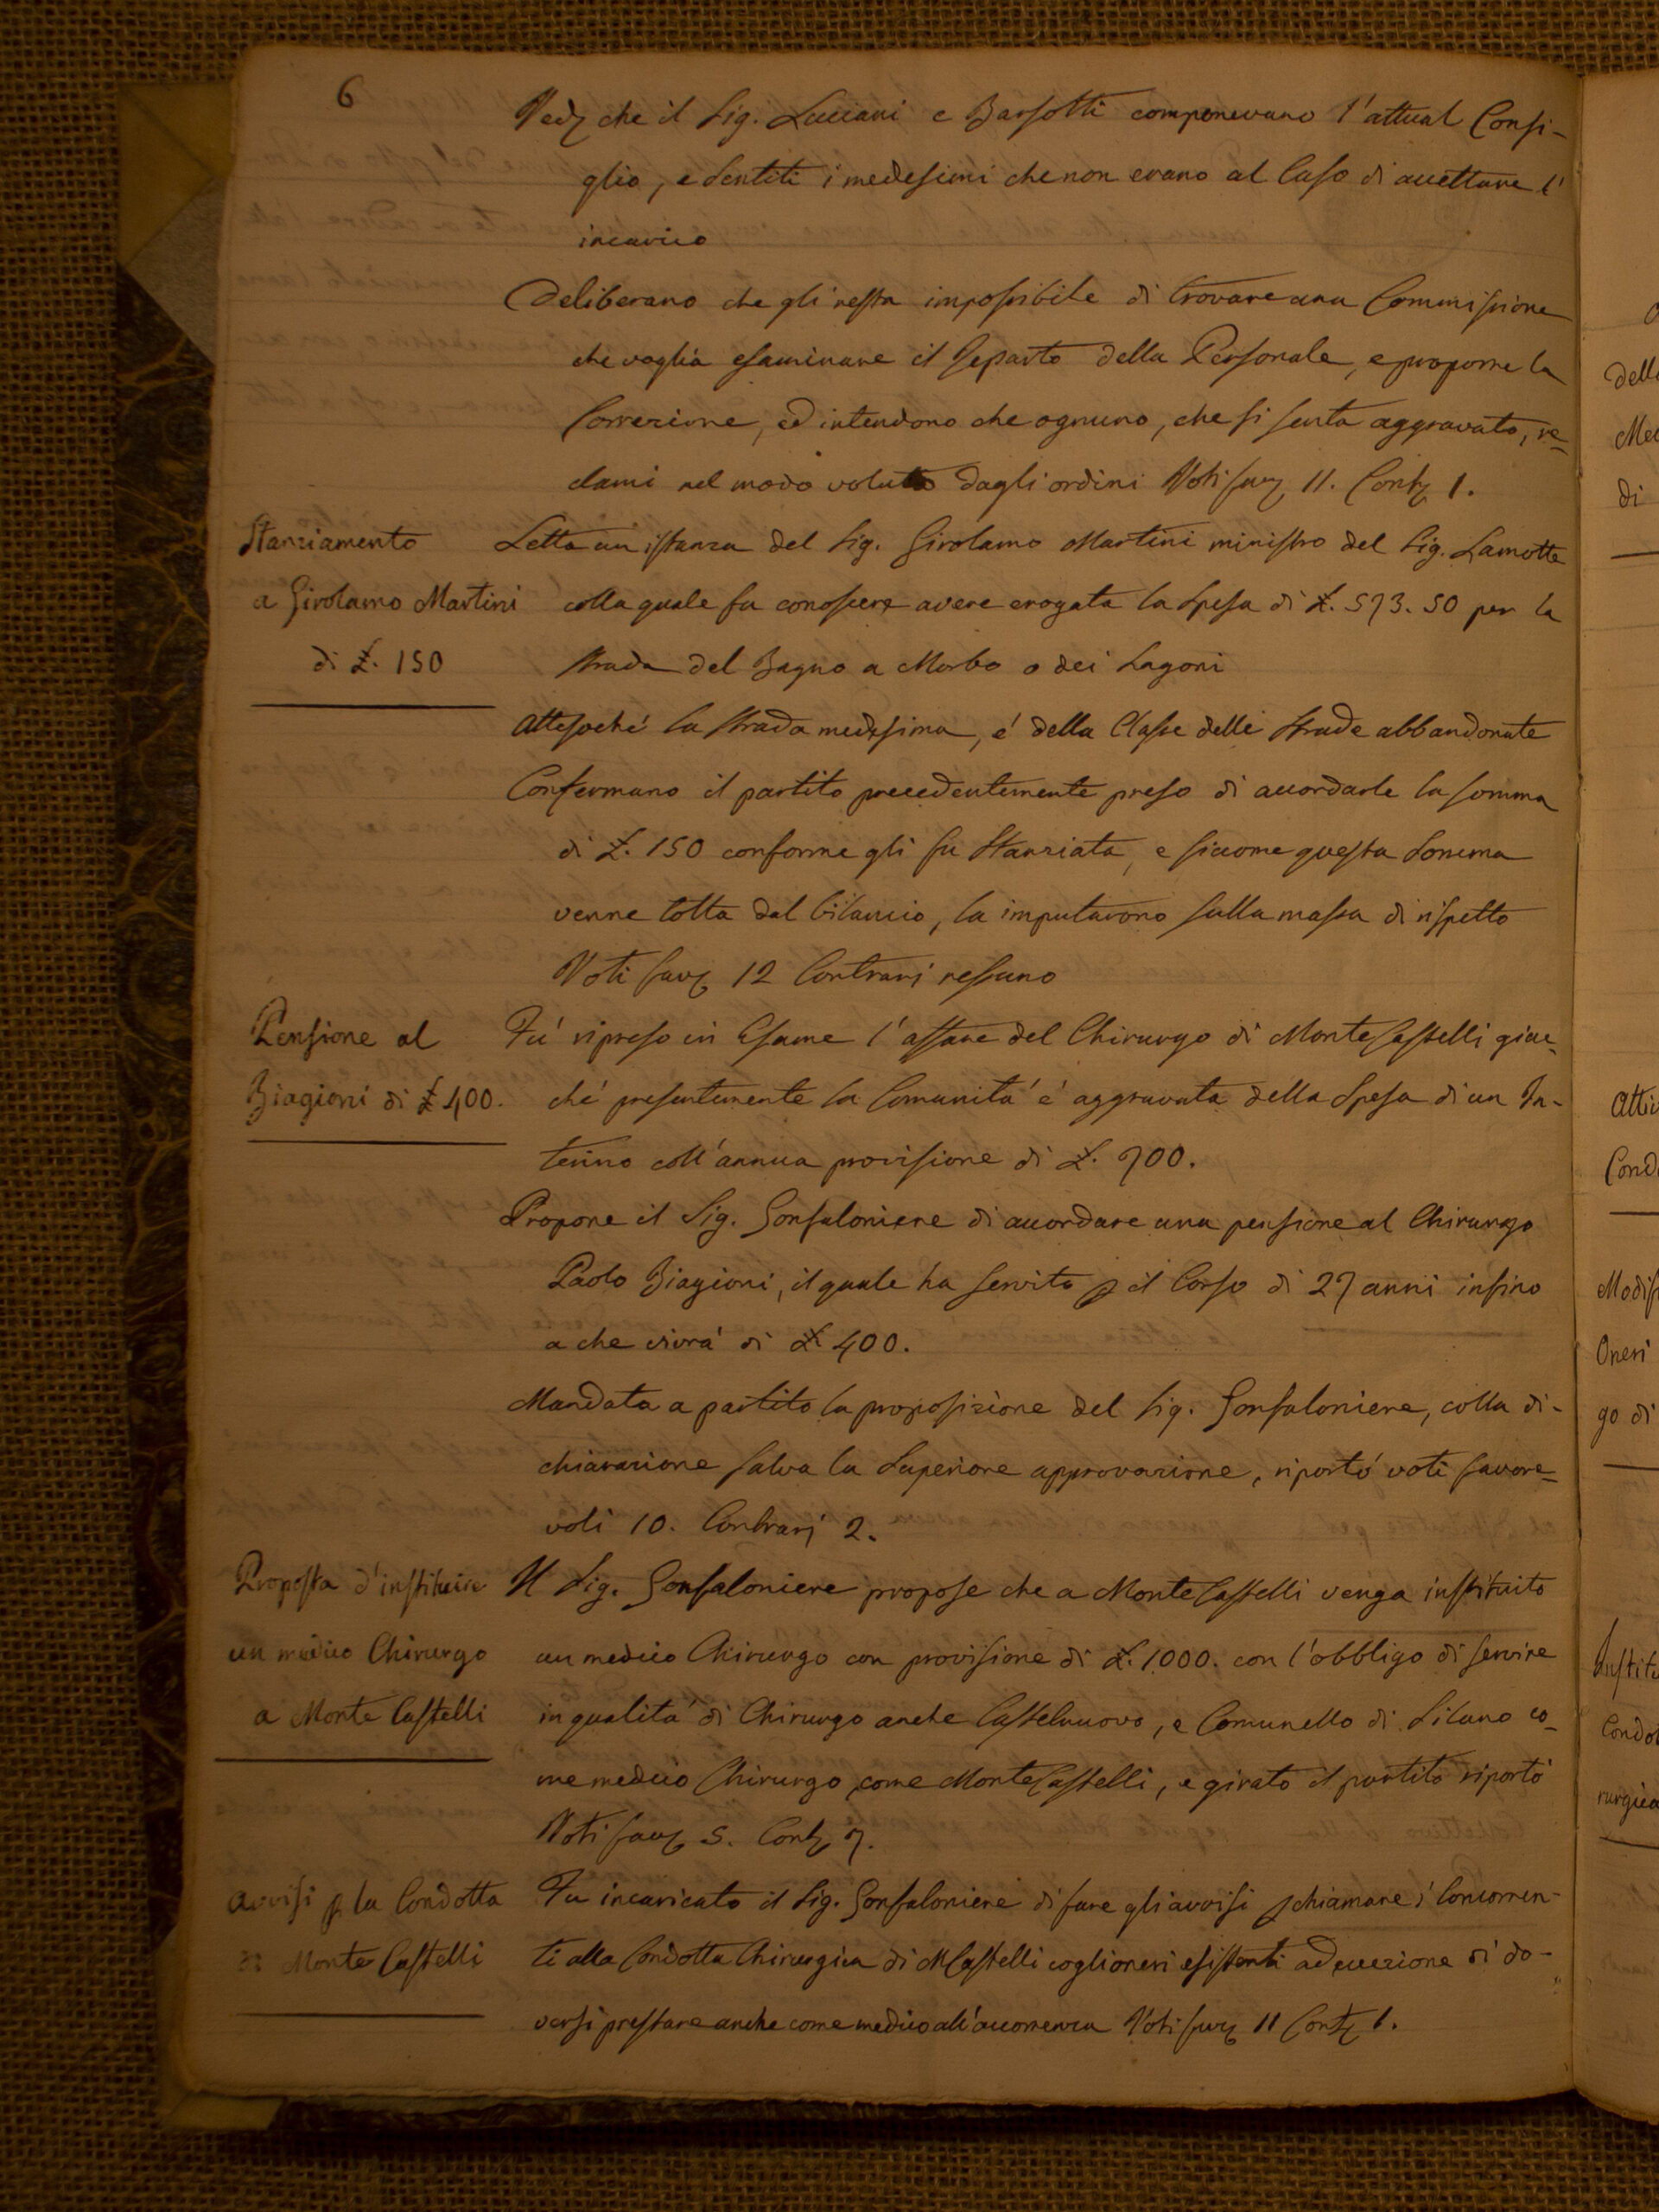 6
Ved che il Sig. Luciani e Barsotti componevano l'attual Consi-
glio, e Sentiti i medesimi che non erano al Caso di accettare l'
incarico
Deliberano che gli resta impossibile di trovare una Commissione
che voglia esaminare il Reparto della Personale, e proporne la
Correzione, ed intendono che ognuno, che si senta aggravato, re=
clami nel modo voluto dagli ordini Voti fav 11. Cont 1.
Stanziamento
a Girolamo Martini
di £. 150
Letta un istanza del Sig. Girolamo Martini ministro del Sig. Lamotte
colla quale fa conoscere avere erogata la Spesa di £. 573. 50 per la
strada del Bagno a Morbo o dei Lagoni
Attesoché la strada medesima, é della Classe delle strade abbandonate
Confermano il partito precedentemente preso di accordarle la somma
di £. 150 conforme gli fu Stanziata, e siccome questa Somma
venne tolta dal bilancio, la imputarono sulla massa di rispetto
Voti fav 12 Contrarj nessuno
Pensione al
Biagioni di £ 400.
Fu' ripreso in Esame l'affare del Chirurgo di Monte Castelli giac=
ché presentemente la Comunitá é aggravata della Spesa di un In-
terino coll'annua provisione di £. 700.
Propone il Sig. Gonfaloniere di accordare una pensione al Chirurgo
Paolo Biagioni, il quale ha servito p il Corso di 27 anni insino
a che vivrá di £ 400.
Mandata a partito la proposizione del Sig. Gonfaloniere, colla di-
chiarazione salva la Superiore approvazione, riportó voti favore=
voli 10. Contrarj 2.
Proposta d'instituire
un medico Chirurgo
a Monte Castelli
Il Sig. Gonfaloniere propose che a Monte Castelli venga instituito
un medico Chirurgo con provisione di £. 1000. con l'obbligo di servire
in qualitá di Chirurgo anche Castelnuovo, e Comunello di Silano co=
me medico Chirurgo come Monte Castelli, e girato il partito riportó
Voti fav 5. Cont 7.
Avvisi p la Condotta
di Monte Castelli
Fu incaricato il Sig. Gonfaloniere di fare gli avvisi p chiamare i Concorren-
ti alla Condotta Chirurgica di M Castelli cogli oneri esistenti ad eccezione di do-
versi prestare anche come medico all'accorrenza Voti fav 11 Cont 1.